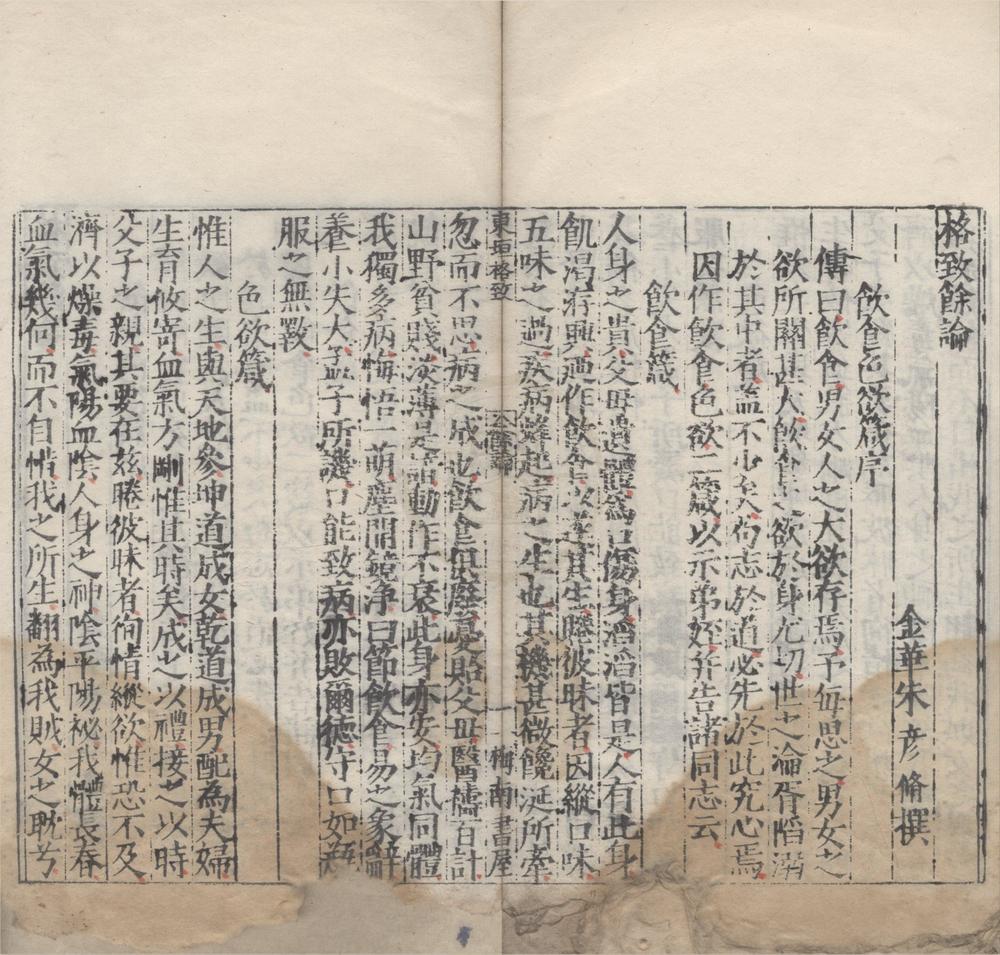 格致餘論
金華朱彥脩撰
飲食色欲箴序
傳曰飲食男女人之大欲存焉予每思之男女之
欲所關甚大飲食之欲於身尤切世之淪胥陷溺
於其中者蓋不少矣苟志於道必先於此究心焉
因作飲食色欲二箴以示弟姪并告諸同志云
飲食箴
人身之貴父母遺體爲口傷身滔滔皆是人有此身
飢渴洊興迺作飲食以遂其生睠彼昧者因縱口味
五味之過疾病蜂起病之生也其機甚微饞涎所牽
東垣格致
餘論
一
梅南書屋
忽而不思病之成也飲食俱廢憂貽父母醫禱百計
山野貧賤淡薄是諳動作不衰此身亦安均氣同體
我獨多病悔悟一萌塵開鏡淨曰節飲食易之象辭
養小失大孟子所譏口能致病亦敗爾德守口如瓶
服之無斁
色欲箴
惟人之生與天地參坤道成女乾道成男配為夫婦
生育攸寄血氣方剛惟其時矣成之以禮接之以時
父子之親其要在玆睠彼昧者徇情縱欲惟恐不及
濟以燥毒氣陽血陰人身之神陰平陽祕我體長春
血氣幾何而不自惜我之所生翻為我賊女之耽兮